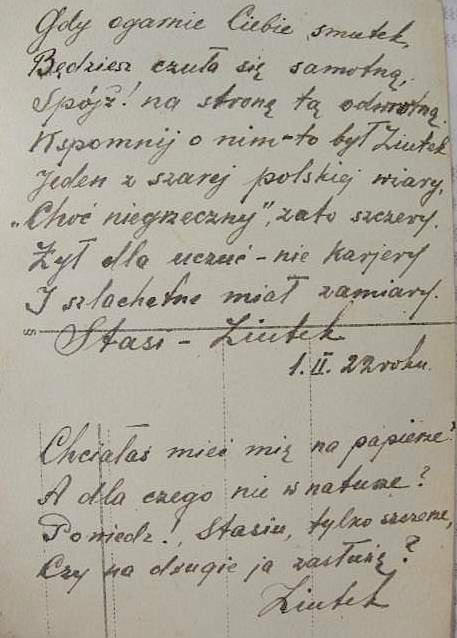 Gdy ogarnie Ciebie smutek,
Będziesz czuła się samotną,
Spójż! na stronę tą odwrotną.
Wspomnij o nim – to był Ziutek
Jeden z szarej polskiej wiary,
„Choć niegrzeczny", zato szczery.
Żył dla uczuć – nie karjery
I szlachetne miał zamiary.
Stasi – Ziutek
1. II. 22 roku.
Chciałaś mieć mię na papierze?
A dla czego nie w naturze?
Powiedz!, Stasiu, tylko szczerze,
Czy na drugie ja zasłużę?
Ziutek